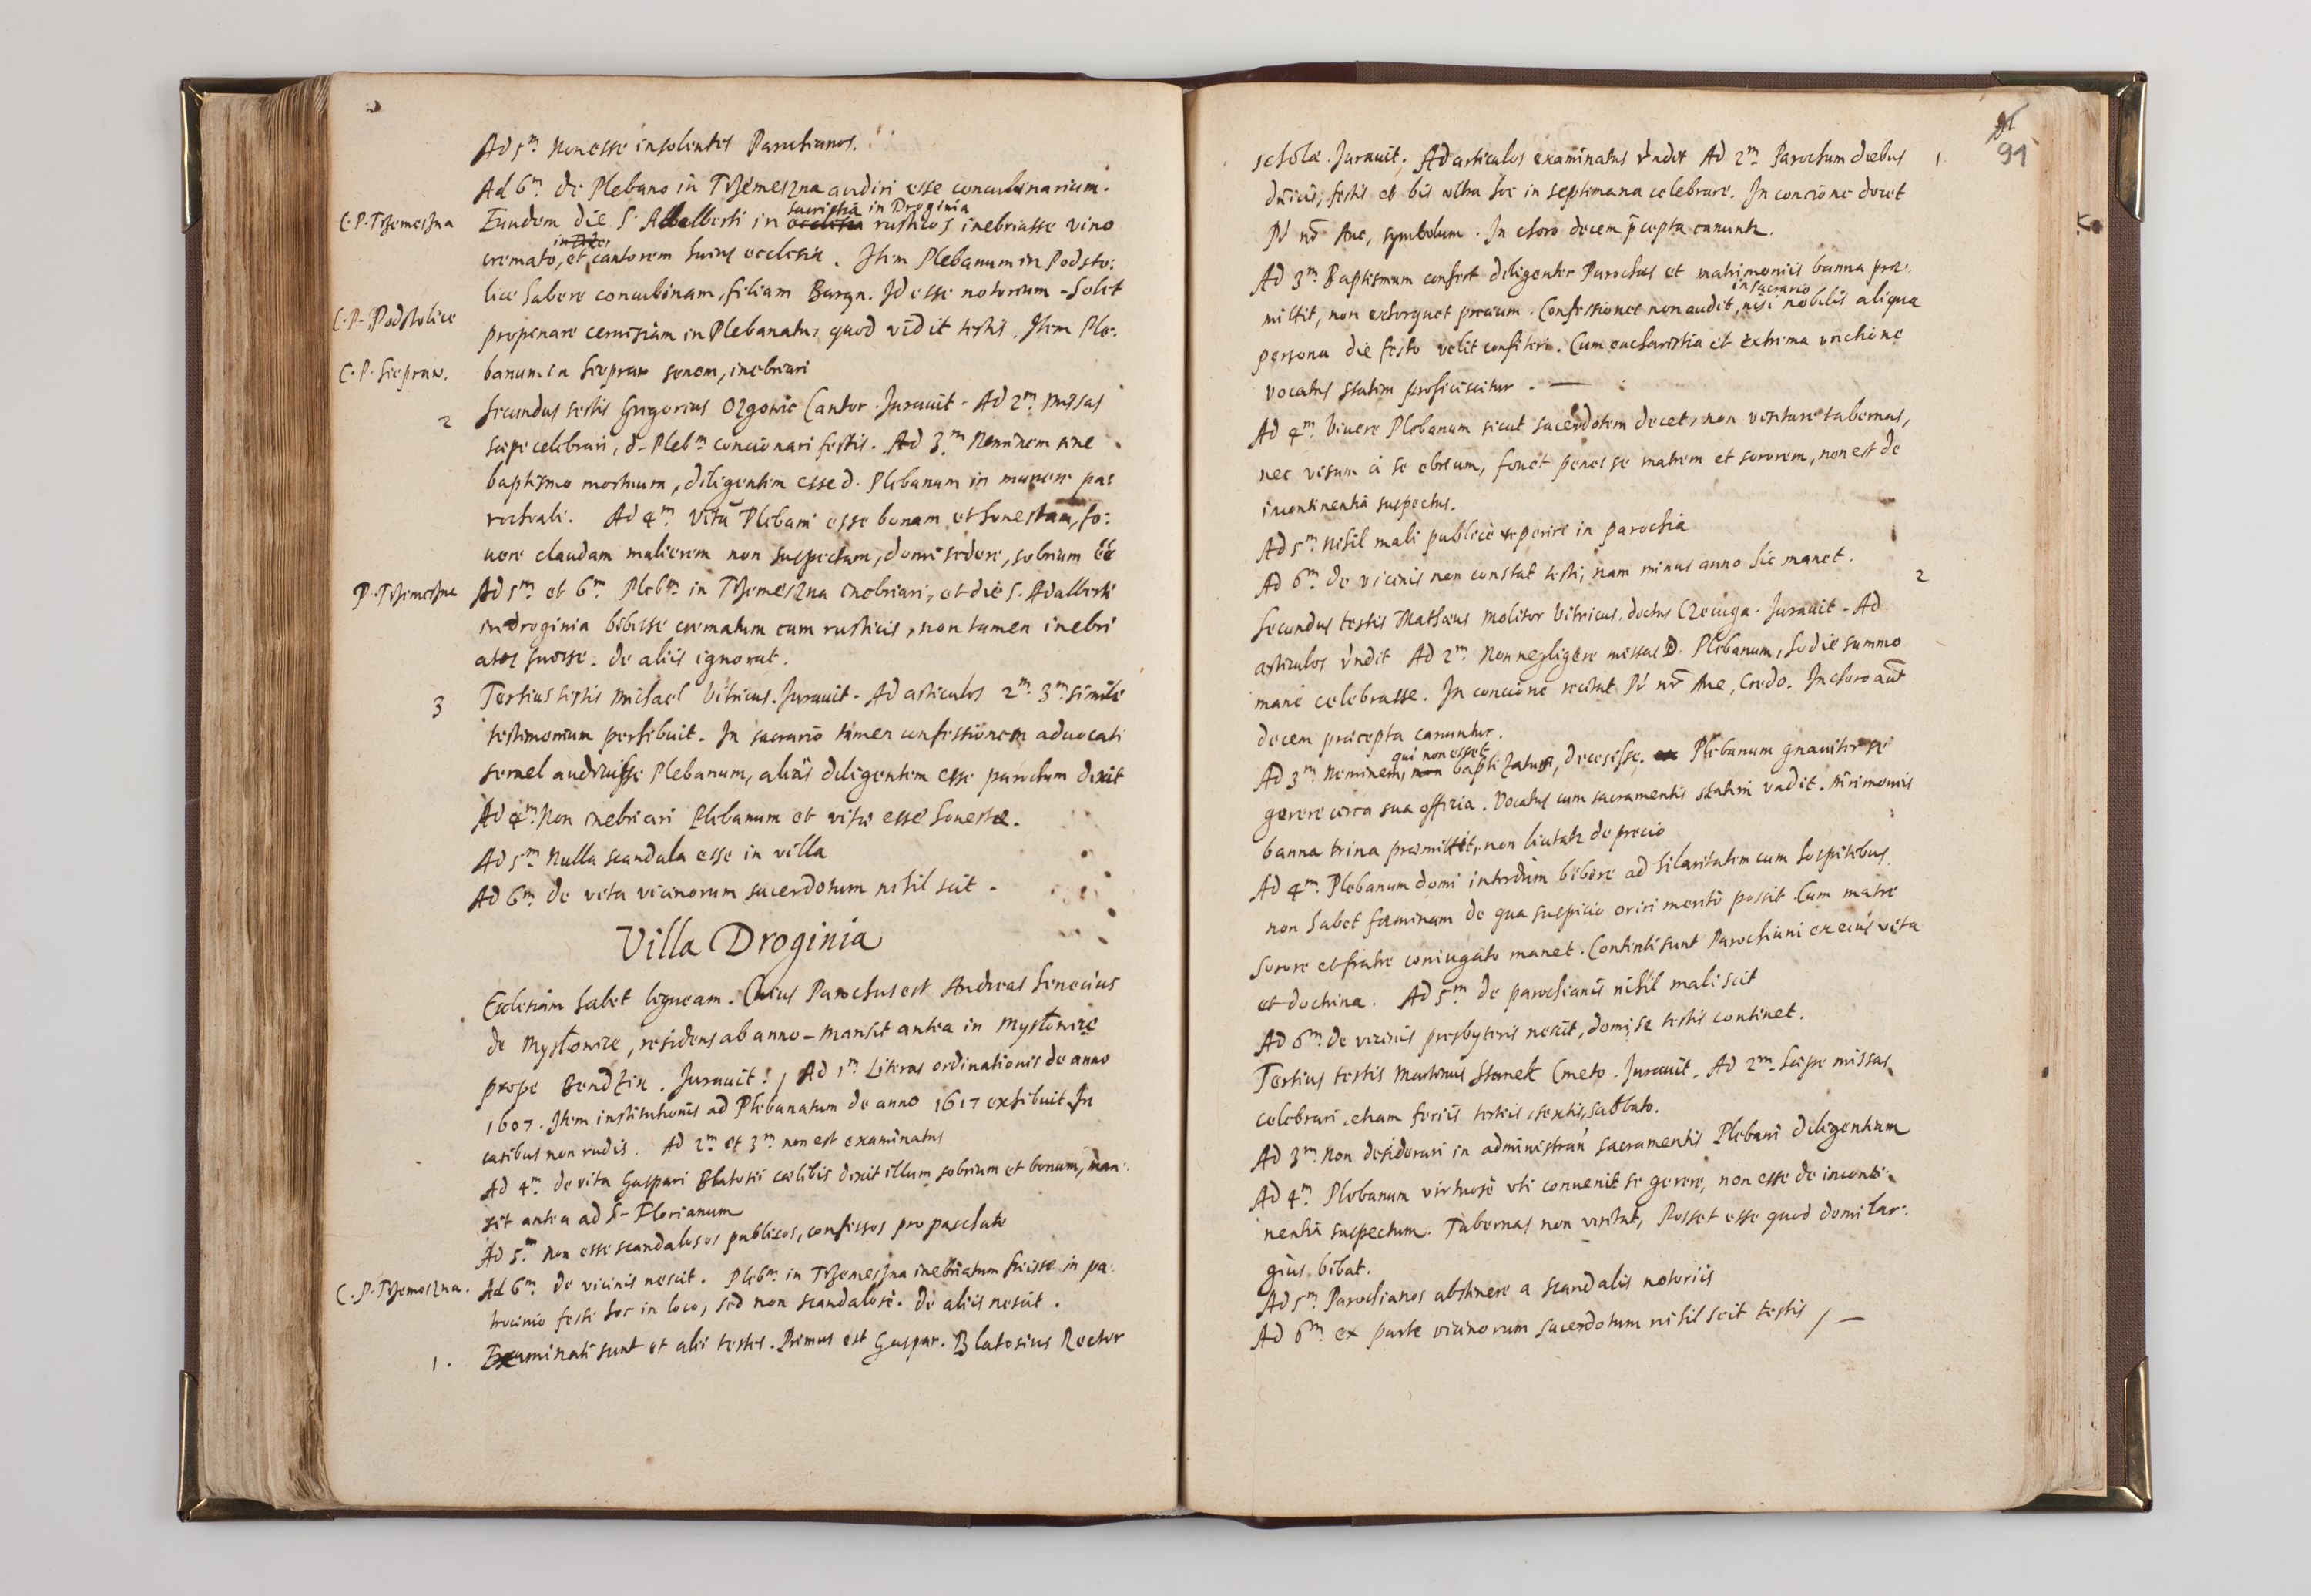 Ad 5m Non esse insolentes Parochianos.
Ad 6m de Plebano in Trzemeszna audiri esse concubinarium.
sacristia in Droginia
C. P. Trzemeszna
Eundem die S. Adalberti in ecclesia rusticos inebriasse vino
cremato, et cantorem huius ecclesiae. Item Plebanum in Podsto:
lice habere concubinam, filiam Id esse notorium. Solet
C. P. Podstolice
propinare cerevisiam in Plebanatu, quod vidit testis. Item Ple:
C. P. Siepraw.
banum in Siepraw senem, inebriari
2
Secundus testis Gregorius Ozgowic Cantor. Juravit. Ad 2m Missas
saepe celebrari, d. Plebm concionari festis. Ad 3m Neminem sine
baptismo mortuum, diligentem esse d. Plebanum in munere pa:
rochiali. Ad 4m Vitā Plebani esse bonam et honestam, fo:
uere claudam mulierem non suspectam, domi sedere, sobrium ee
P. Trzemeszna
Ad 5m et 6m Plebm in Trzemeszna inebriari, et die S. Adalberti
in droginia bibisse crematum cum rusticis, non tamen inebri
atos fuisse. De aliis ignorat.
3
Tertius testis Michael Vitricus. Juravit. Ad articulos 2m. 3m simile
testimonium perhibuit. In sacrario tamen confessionem advocati
semel audivisse Plebanum, alias diligentem esse parochum dixit
Ad 4m. Non inebriari Plebanum et vitae esse honestae.
Ad 5m Nulla scandala esse in villa
Ad 6m de vita vicinorum sacerdotum nihil scit.
Villa Droginia
Ecclesiam habet ligneam. Cuius Parochus est Andreas Senecius
de Mysłowice, residens ab anno - Mansit antea in Mysłowice
prope Bendzin. Juravit. / Ad 1m Literas ordinationis de anno
1607. Item institutionis ad Plebanatum de anno 1617 exhibuit. In
casibus non rudis. Ad 2m et 3m non est examinatus
Ad 4m de vita Gaspari Blatosii caelibis dixit illum sobrium et bonum, man:
sit antea ad S. Florianum
Ad 5m Non esse scandalosos publicos, confessos pro paschate
C. P. Trzemeszna.
Ad 6m de vicinis nescit. Plebm in Trzemeszna inebriatum fuisse in pa:
trocinio festi hoc in loco, sed non scandalose. De aliis nescit.
1.
Examinati sunt et alii testes. Primus est Gaspar. Blatosius Rector
91
schola. Juravit. Ad articulos examinatus rndet Ad 2m Parochum diebus
1
dnicis, festis et bis ultra hoc in septimana celebrare. In concione docet
Pr nr Ave, symbolum. In choro decem pcepta canuntr.
Ad 3m Baptismum confert diligenter Parochus et matrimoniis banna prae:
in sacrario
mittit, non extorquet precium. Confessiones non audit, nisi nobilis aliqua
persona die festo velit confiteri. Cum eucharistia et extrema unctione
vocatus statim proficiscitur. —
Ad 4m. Vivere Plebanum sicut sacerdotem decet, non visitare tabernas,
nec visum à se ebrium, fovet penes se matrem et sororem, non est de
incontinentia suspectus.
Ad 5m Nihil mali publicè reperire in parochia
Ad 6m. de vicinis non constat testi, nam minus anno hic manet.
2
Secundus testis Mathaeus Molitor Vitricus, dictus Czeluga. Juravit. Ad
articulos rndit Ad 2m. Non negligere missas D. Plebanum, hodie summo
mane celebrasse. In concione recitat Pr nr Ave, Credo. In choro aut
decem praecepta canuntur.
qui non esset
Ad 3m Neminem, non baptizatus, decessisse. Plebanum gnaviter se
gerere circa sua officia. Vocatus cum sacramentis statim vadit. Mrimoniis
banna trina praemittit, non licitatr de precio
Ad 4m. Plebanum domi interdum bibere ad hilaritatem cum hospitibus.
non habet foeminam de qua suspicio oriri meritò possit. Cum matre
sorore et fratre coniugato manet. Contenti sunt Parochiani ex eius vita
et doctrina. Ad 5m de parochianis nihil mali scit
Ad 6m. de vicinis presbyteris nescit, domi se testis continet.
Tertius testis Martinus Stanek Cmeto. Juravit. Ad 2m. Saepe missas
celebrari, etiam feriis tertiis, sextis, sabbato.
Ad 3m. Non desiderari in administran sacramentis Plebani diligentiam
Ad 4m Plebanum virtuosè uti convenit se gerere, non esse de inconti:
nentia suspectum. Tabernas non visitat, Posset esse quod domi lar:
gius bibat.
Ad 5m. Parochianos abstinere a scandalis notoriis
Ad 6m. ex parte vicinorum sacerdotum nihil scit testis / —